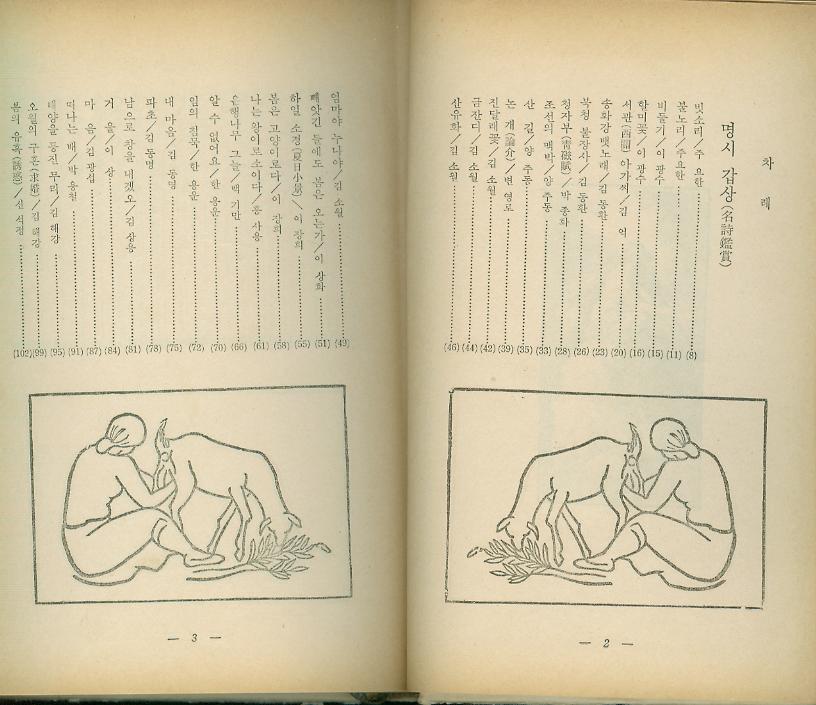 차 례
명시 감상 (名詩鑑賞)
빗소리/주 요한 (8)
불노리/주요한 (11)
비둘기/이 광수 (15)
할미꽃/이 광수 (16)
서관(西關) 아가씨/김 억 (20)
송화강 뱃노래/김 동환 (23)
북청 물장사/김 동환 (26)
청자부(靑磁賦)/박 종화 (28)
조선의 맥박/양 주동 (33)
산 길/양 주동 (35)
논 개(論介)/변 영로 (39)
진달래꽃/김 소월 (42)
금잔디/김 소월 (44)
산유화/김 소월 (46)
— 2 —
엄마야 누나야/김 소월 (49)
빼앗긴 들에도 봄은 오는가/이 상화 (51)
하일 소경(夏日小景)\이 장희 (55)
봄은 고양이로다/이 장희 (58)
나는 왕이로소이다/홍 사용 (61)
은행나무 그늘/백 기만 (66)
알 수 없어요/한 용운 (70)
임의 침묵/한 용운 (72)
내 마음/김 동명 (75)
파초/김 동명 (78)
남으로 창을 내겠오/김 상용 (81)
거 울/이 상 (84)
마 음/김 광섭 (87)
떠나는 배/박 용철 (91)
태양을 등진 무리/김 해강 (95)
오월의 구혼(求婚)/김 해강 (99)
봄의 유혹(誘惑)/신 석정 (102)
— 3 —